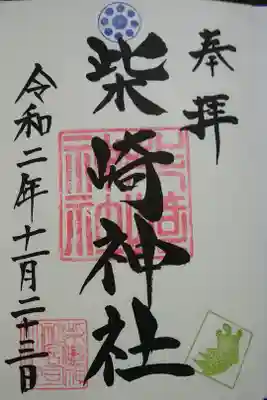 奉拝
柴崎神社
令和二年十一月二十三日